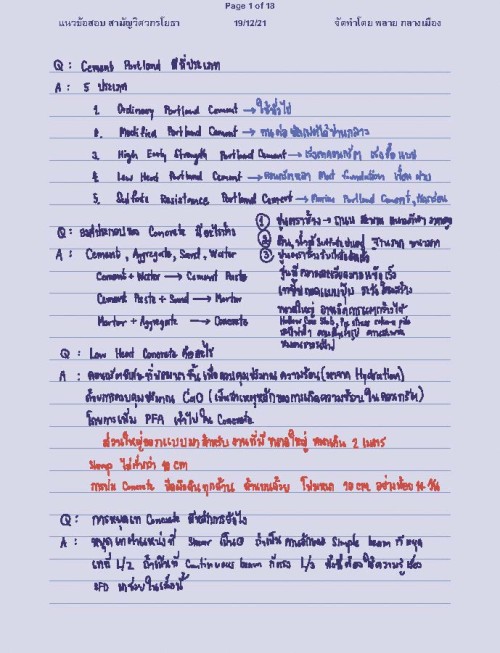 Page 1 of 18
แนวข้อสอบ สามัญวิศวกรโยธา 19/12/21 จัดทำโดย พลาย กลางเมือง
Q : Cement Portland มีกี่ประเภท
A : 5 ประเภท
1. Ordinary Portland Cement → ใช้ทั่วไป
2. Modified Portland Cement → ทนต่อซัลเฟตได้ปานกลาง
3. High Early Strength Portland Cement → เร่งเทคอนกรีต เร่งรื้อแบบ
4. Low Heat Portland Cement → คอนกรีตหลา Mat foundation เขื่อน ฝาย
5. Sulfate Resistance Portland Cement → Marine Portland Cement,
Q : องค์ประกอบของ Concrete มีอะไรบ้าง
A : Cement, Aggregate, Sand, Water
Cement + Water → Cement Paste
Cement Paste + Sand → Mortar
Mortar + Aggregate → Concrete
① ปูนโครงสร้าง → ถนน สะพาน
②
③
Hollow Core Slab,
Q : Low Heat Concrete คืออะไร
A : คอนกรีตพิเศษที่พัฒนาขึ้นเพื่อควบคุมปริมาณความร้อน (จาก Hydration)
ด้วยการควบคุมปริมาณ CaO (เป็นสาเหตุหลักของการเกิดความร้อนในคอนกรีต)
โดยการเพิ่ม PFA เข้าไปใน Concrete
ส่วนใหญ่ออกแบบมาสำหรับ งานที่มี ขนาดใหญ่ หนาเกิน 2 เมตร
Slump ไม่ต่ำกว่า 10 cm
การบ่ม Concrete ปิดผิวดินทุกด้าน ด้านบนด้วย โฟมหนา 10 cm อย่างน้อย 14 วัน
Q : การหยุดเท Concrete มีหลักการอย่างไร
A : หยุดเทตำแหน่งที่ Shear เป็น 0 ถ้าเป็น คานลักษณะ Simple beam ก็หยุด
เทที่ L/2 ถ้าเป็นที่ Continuous beam ก็ตรง L/3 ทั้งนี้ต้องใช้ความรู้เรื่อง
SFD มาช่วยในเรื่องนี้